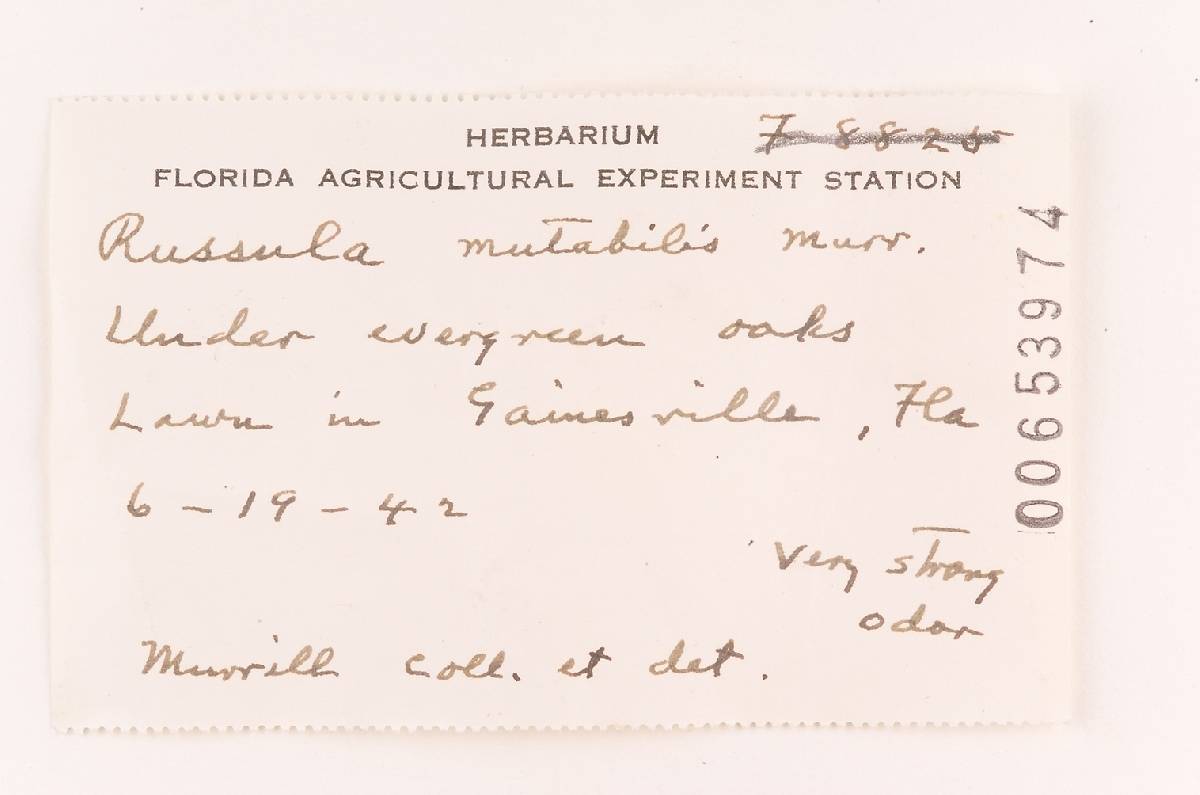 HERBARIUM
F 8825
FLORIDA AGRICULTURAL EXPERIMENT STATION
Russula mutabilis Murr.
Under evergreen oaks
Lawn in Gainesville, Fla
6-19-42
Very strong
odor
Murrill coll. et det.
00653974